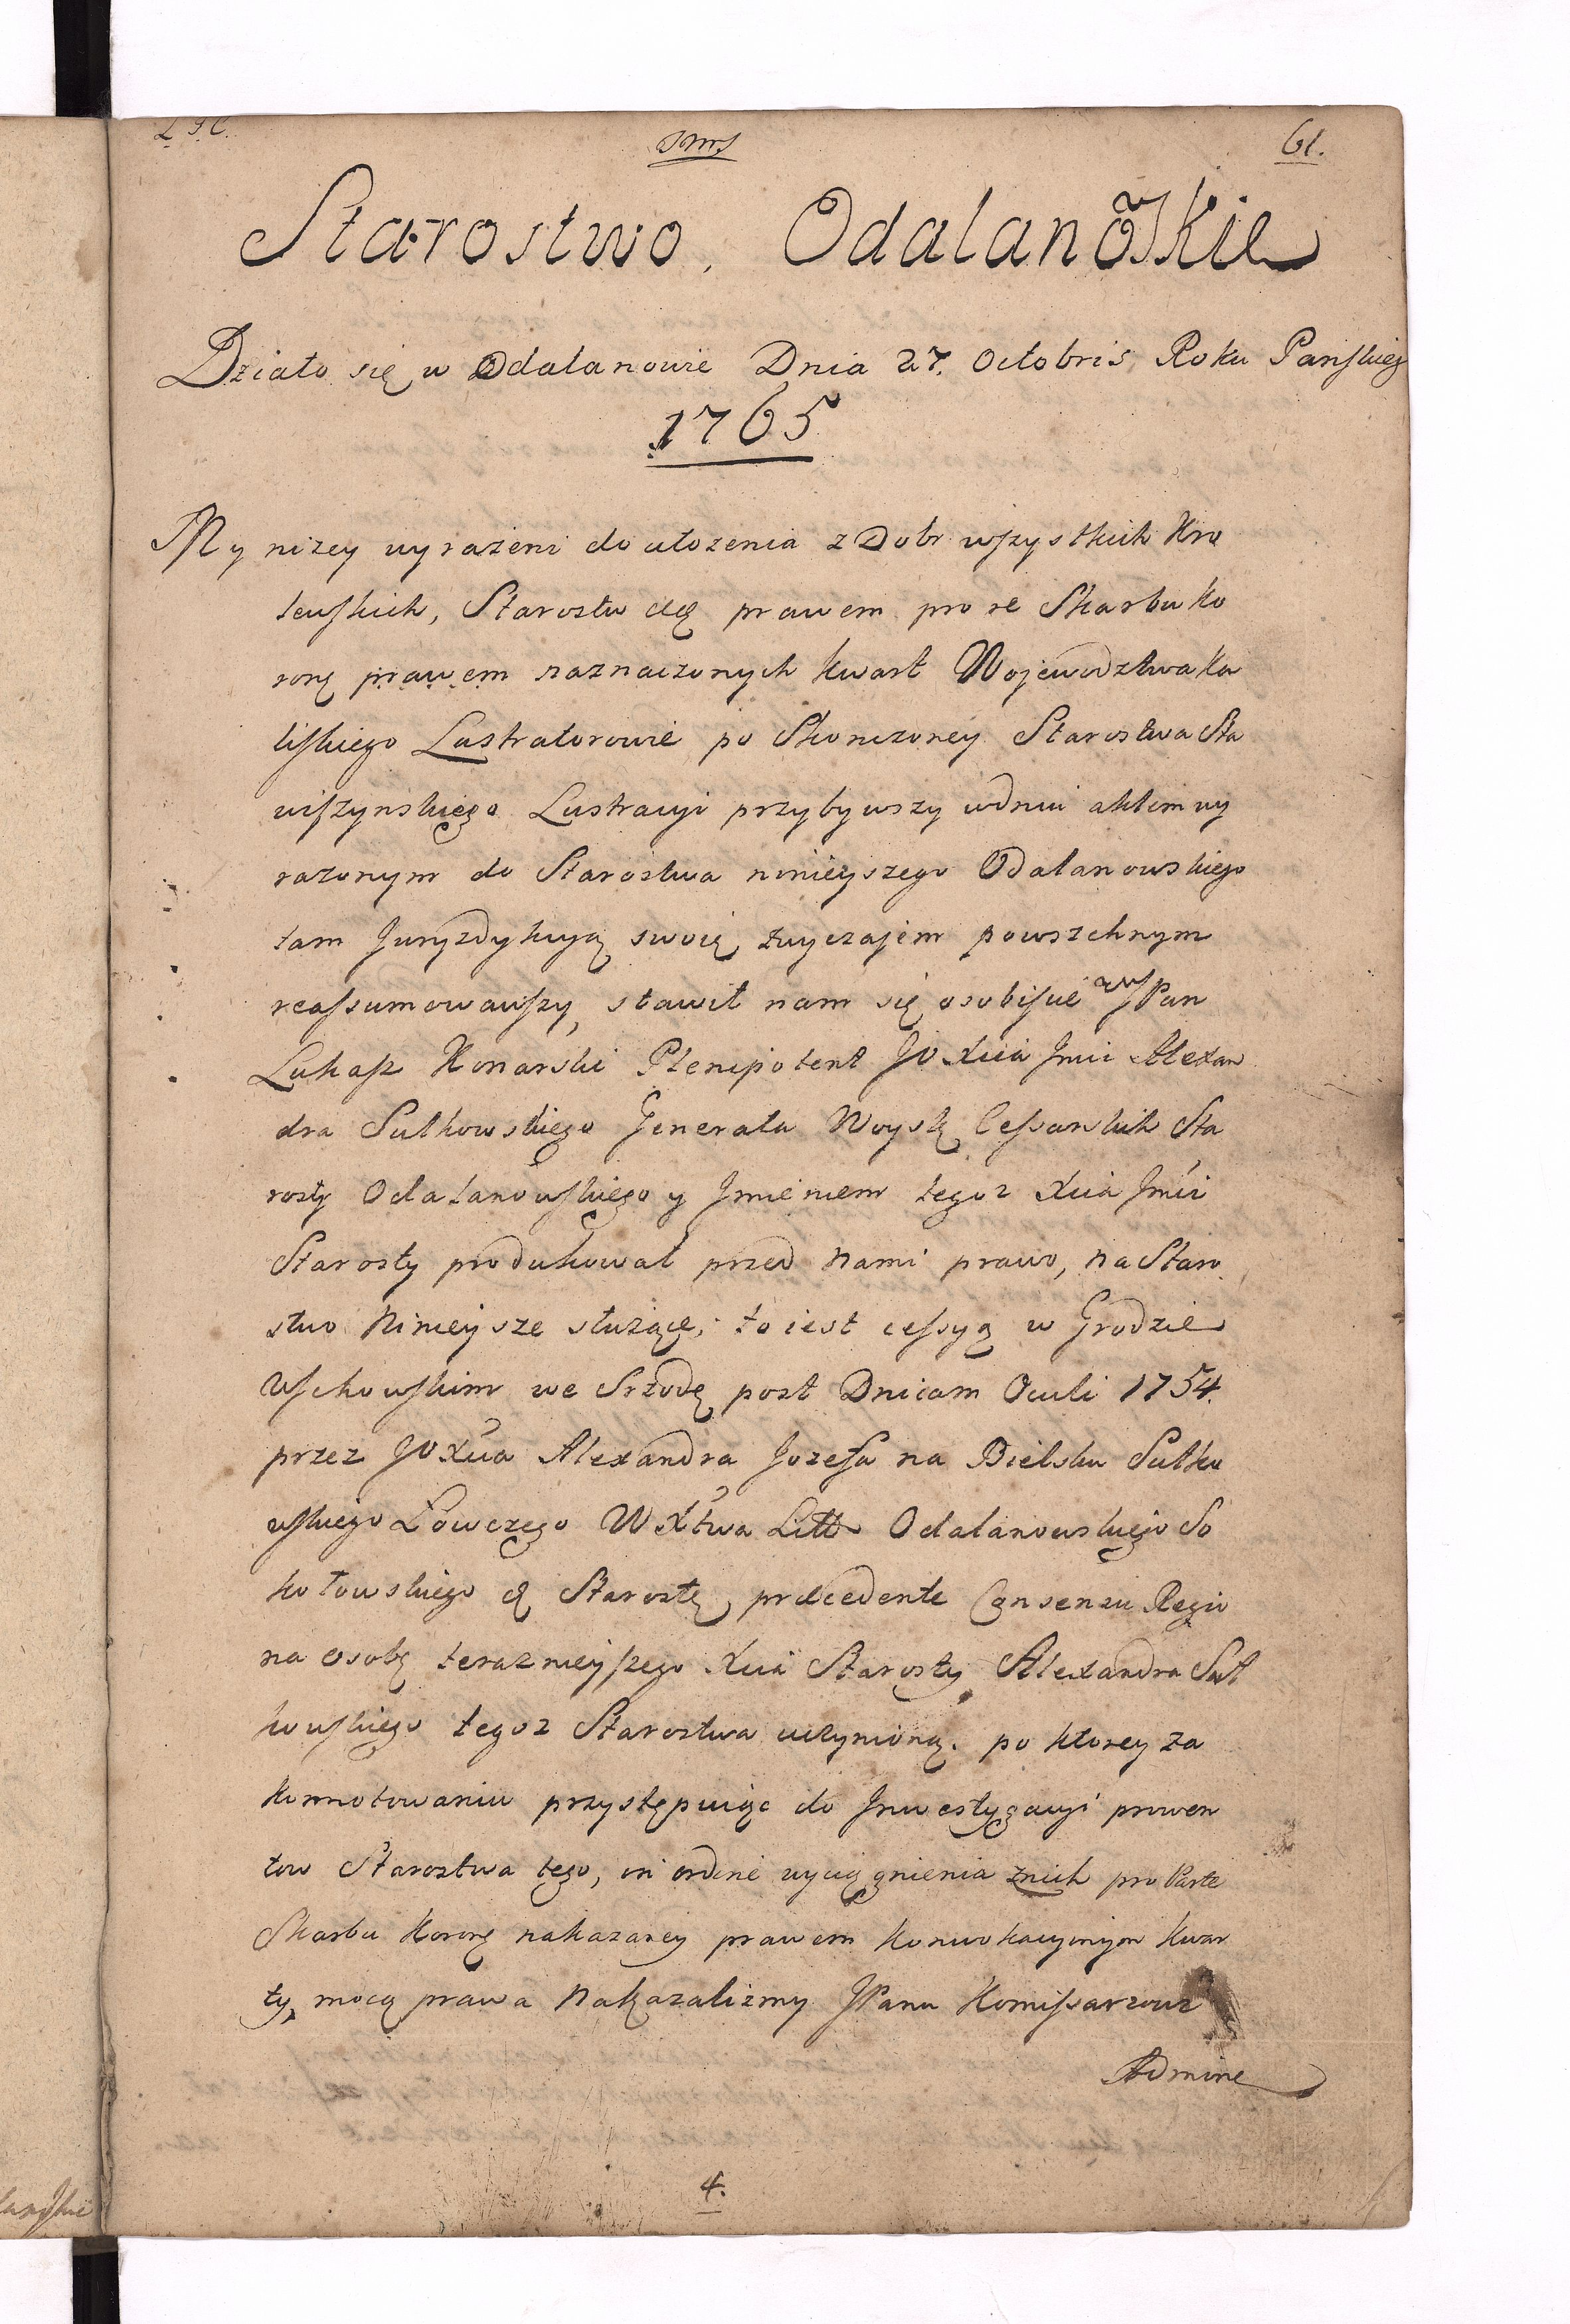 61.
Starostwo Odalanowskie
Działo się w Odalanowie Dnia 27. Octobris Roku Panskieg
1765
My nizey wyrażeni do ułozenia z Dobr wszystkich Kro
lewskich, Starostw &c prawem pro re Skarbu Ko
ronę prawem naznaczonych kwart Wojewodztwa Ka
liskiego Lustratorowie po Skonczoney Starostwa Sta
wiszynskiego Lustracyi przybywszy w dniu aktem wy
razonym do Starostwa ninieyszego Odalanowskiego
tam Juryzdykcyą swoię zwyczajem powszchnym
reassumowawszy, stawił nam się osobiscie JPan
Lukasz Konarski Plenipotent JO Xcia Jmci Alexan
dra Sulkowskiego Generała Woysk Cessarskich Sta
rosty Odalanowskiego y Jmieniem tegoz Xcia Jmci
Starosty produkował przed nami prawo, na Staro
stwo Ninieysze słuzące, to iest cessyą w Grodzie
Wschowskim we Srzodę post Dnicam Oculi 1754.
przez JO Xcia Alexandra Jozefa na Bielsku Sulko
wskiego Łowczego W Xtwa Litt Odalanowskiego So
kołowskiego &c Starostę, præcedente Consensu Regio
na osobę teraznieyszego Xcia Starosty Alexandra Sul
kowskiego tegoz Starostwa uczynioną. po ktorey za
konnotowaniu przystępuiąc do Jnwestygacyi prowen
tow Starostwa tego, in ordine wyciągnienia znich pro Parte
Skarbu Koronę nakazaney prawem konwokacyinym kwar
ty, mocą prawa Nakazalizmy JPanu Komissarzowi
Admini
4.